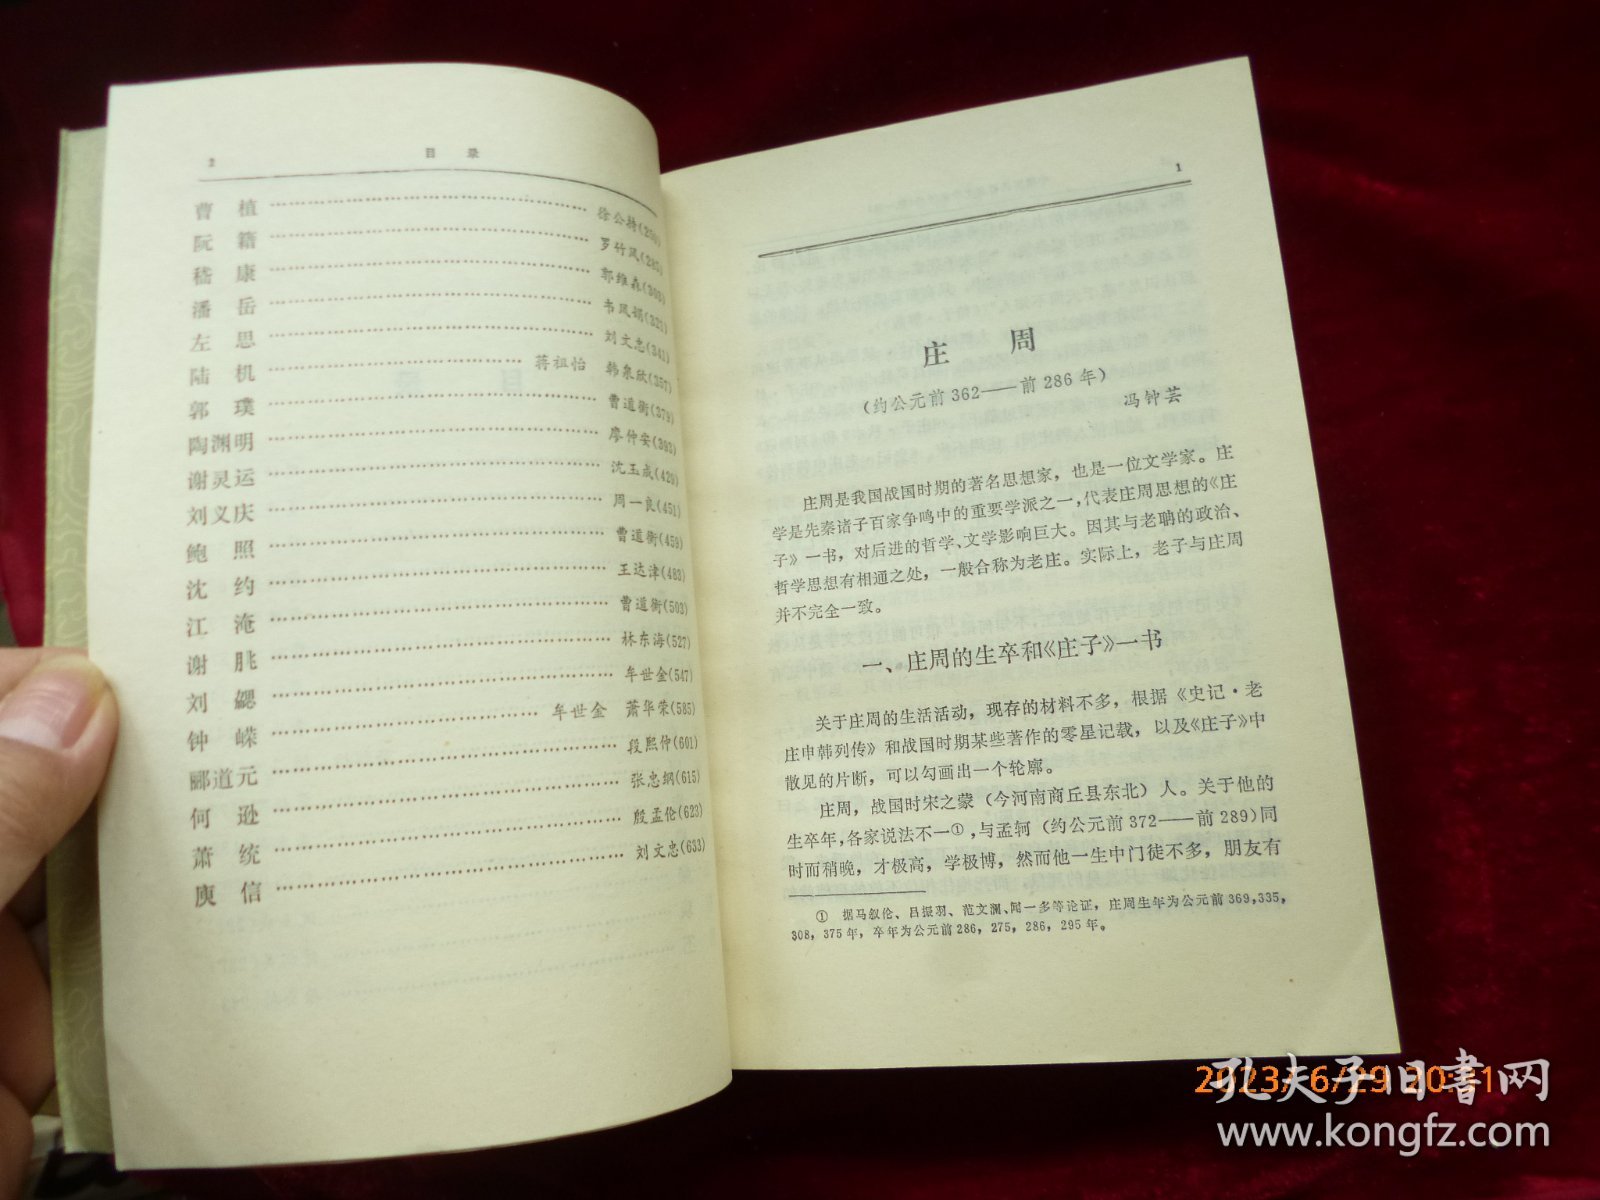 2 目录
曹植 徐公持(250)
阮籍 罗竹风(285)
嵇康 郭维森(303)
潘岳 韦凤娟(321)
左思 刘文忠(341)
陆机 蒋祖怡 韩泉欣(357)
郭璞 曹道衡(379)
陶渊明 廖仲安(393)
谢灵运 沈玉成(429)
刘义庆 周一良(451)
鲍照 曹道衡(459)
沈约 王达津(483)
江淹 曹道衡(503)
谢朓 林东海(527)
刘勰 牟世金(547)
钟嵘 牟世金 萧华荣(585)
郦道元 段熙仲(601)
何逊 张忠纲(615)
萧统 殷孟伦(623)
庾信 刘文忠(633)
1
庄周
(约公元前362——前286年)
冯钟芸
庄周是我国战国时期的著名思想家，也是一位文学家。庄
学是先秦诸子百家争鸣中的重要学派之一，代表庄周思想的《庄
子》一书，对后进的哲学、文学影响巨大。因其与老聃的政治、
哲学思想有相通之处，一般合称为老庄。实际上，老子与庄周
并不完全一致。
一、庄周的生卒和《庄子》一书
关于庄周的生活活动，现存的材料不多，根据《史记·老
庄申韩列传》和战国时期某些著作的零星记载，以及《庄子》中
散见的片断，可以勾画出一个轮廓。
庄周，战国时宋之蒙（今河南商丘县东北）人。关于他的
生卒年，各家说法不一①，与孟轲（约公元前372——前289）同
时而稍晚，才极高，学极博，然而他一生中门徒不多，朋友有
① 据马叙伦、吕振羽、范文澜、闻一多等论证，庄周生年为公元前369，335，
308，375年，卒年为公元前286，275，286，295年。
2023/6/29 20:31
孔夫子旧书网
www.kongfz.com